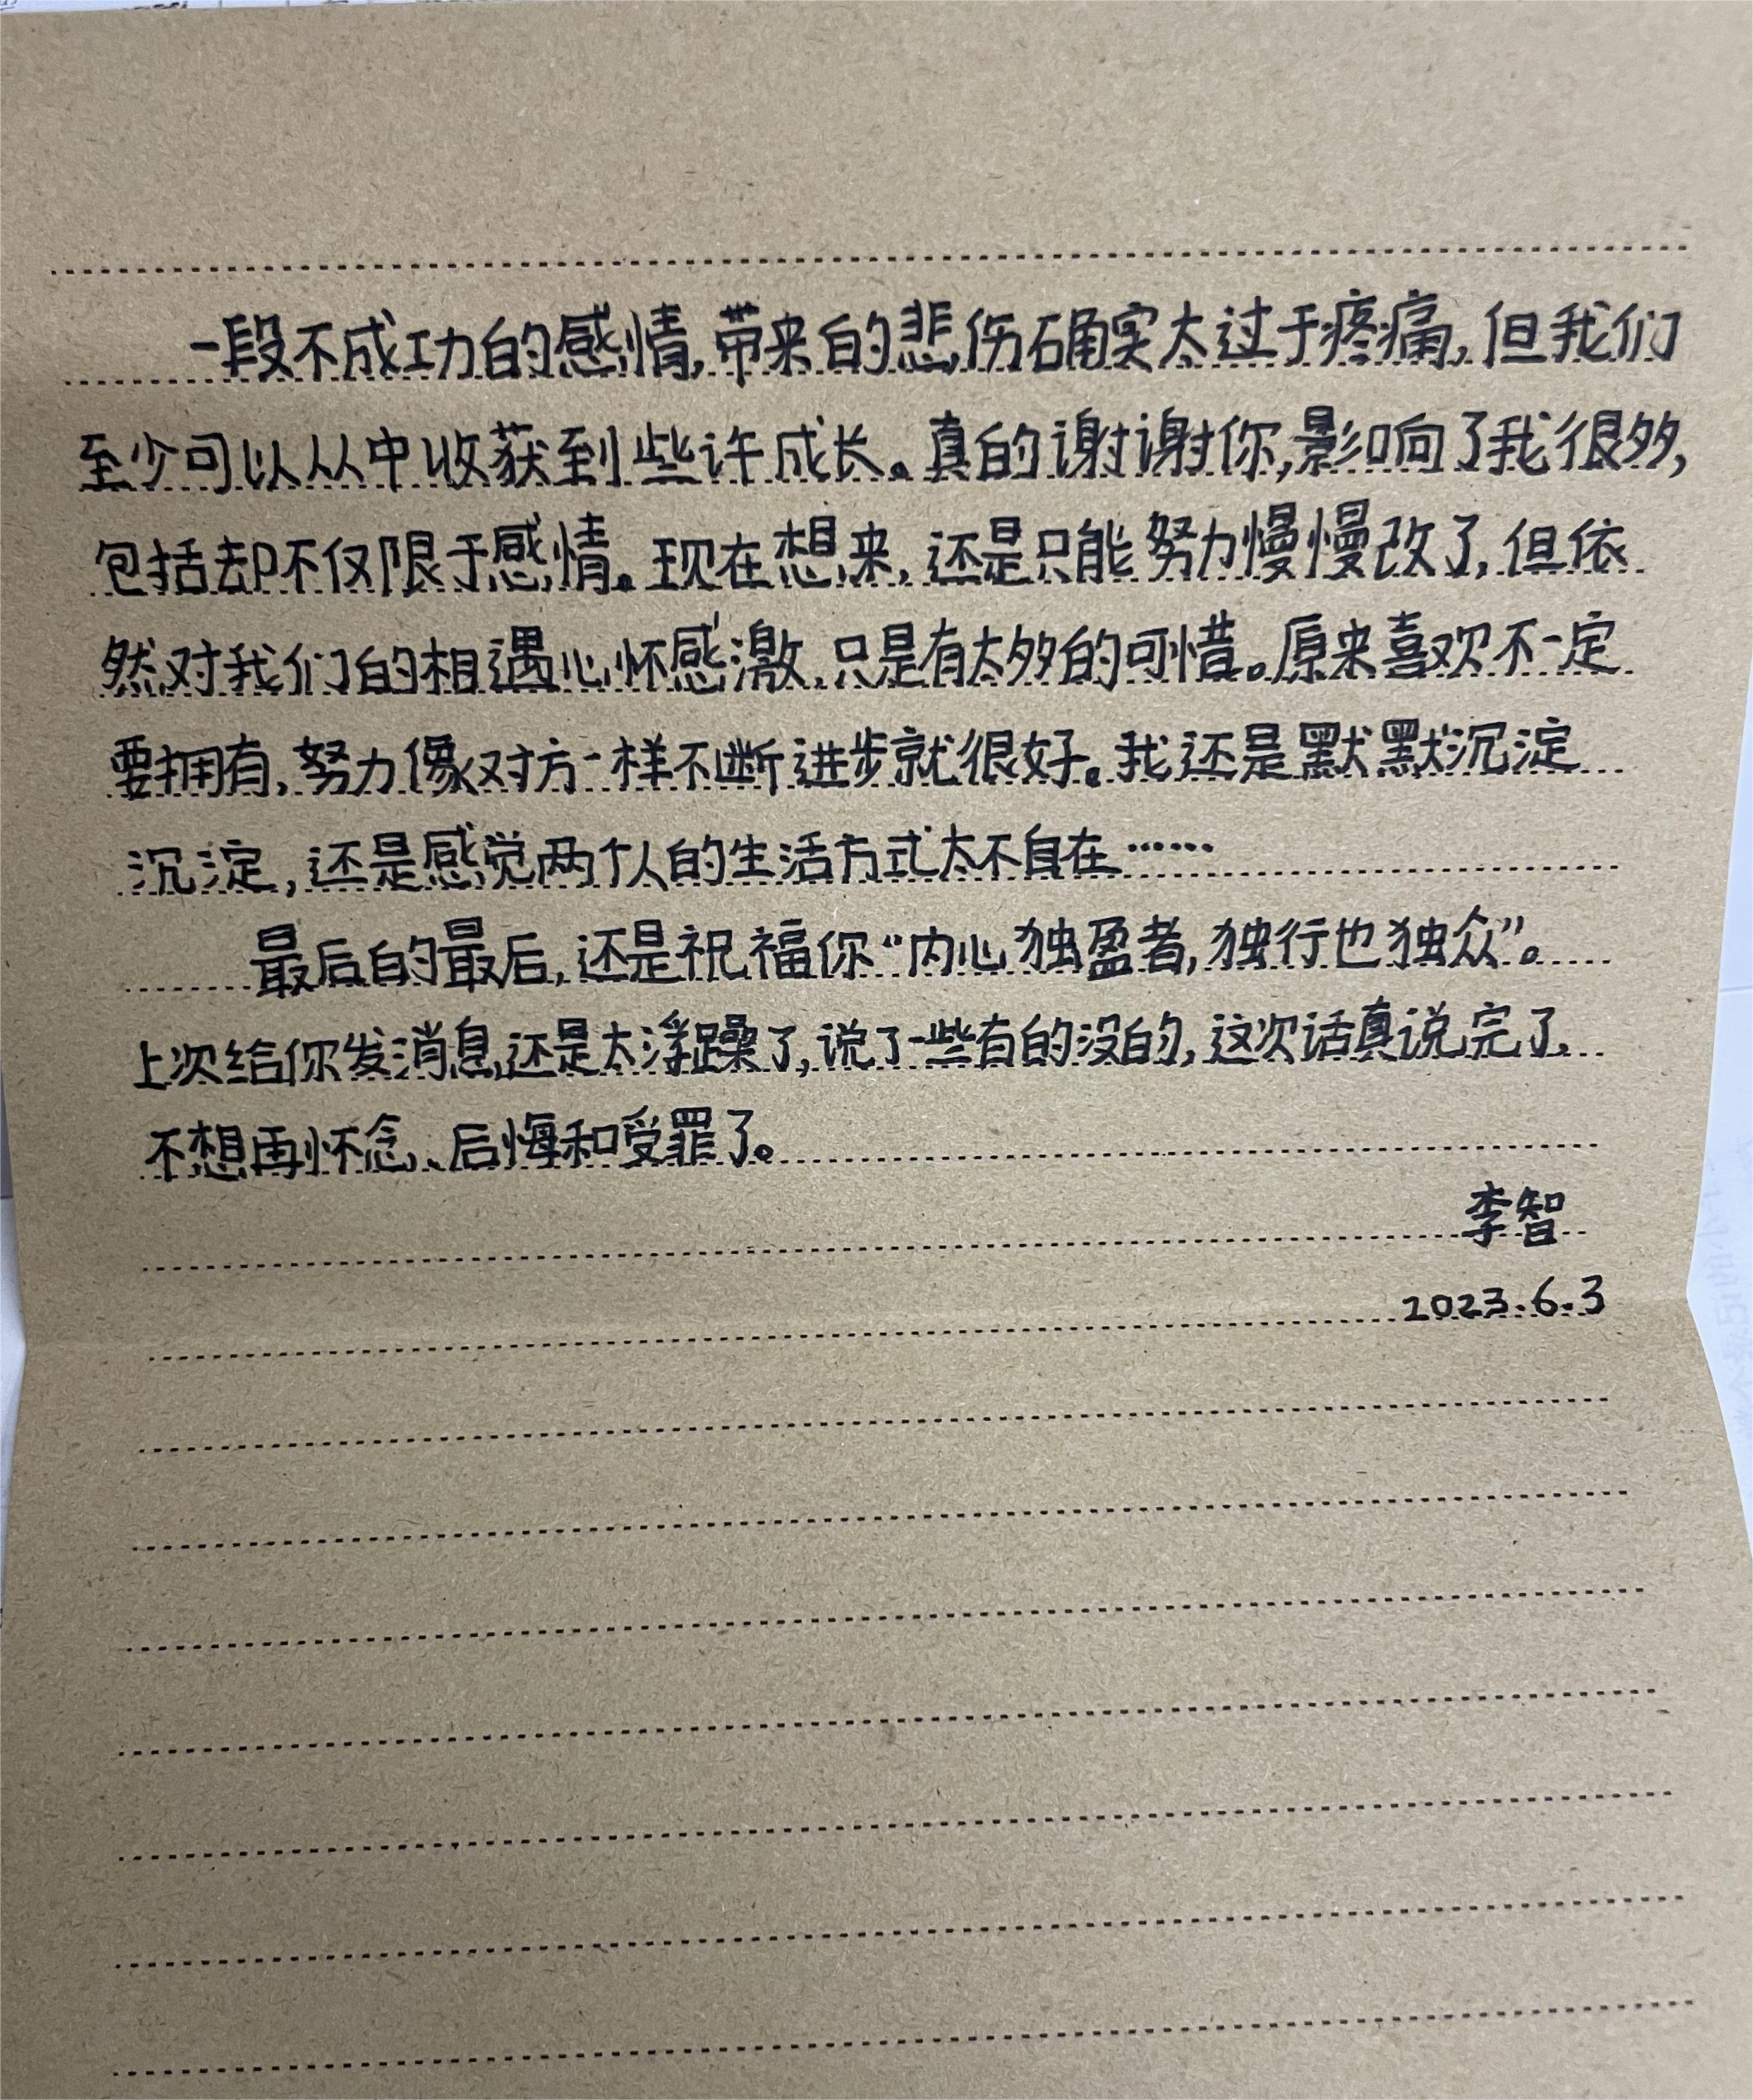 一段不成功的感情,带来的悲伤确实太过于疼痛,但我们
至少可以从中收获到些许成长。真的谢谢你,影响了我很多,
包括却不仅限于感情。现在想来,还是只能努力慢慢改了,但依
然对我们的相遇心怀感激,只是有太多的可惜。原来喜欢不一定
要拥有,努力像对方一样不断进步就很好。我还是默默沉淀
沉淀,还是感觉两个人的生活方式太不自在……
最后的最后,还是祝福你“内心独盈者,独行也独众”。
上次给你发消息,还是太浮躁了,说了一些有的没的,这次话真说完了,
不想再怀念、后悔和受罪了。
李智
2023.6.3